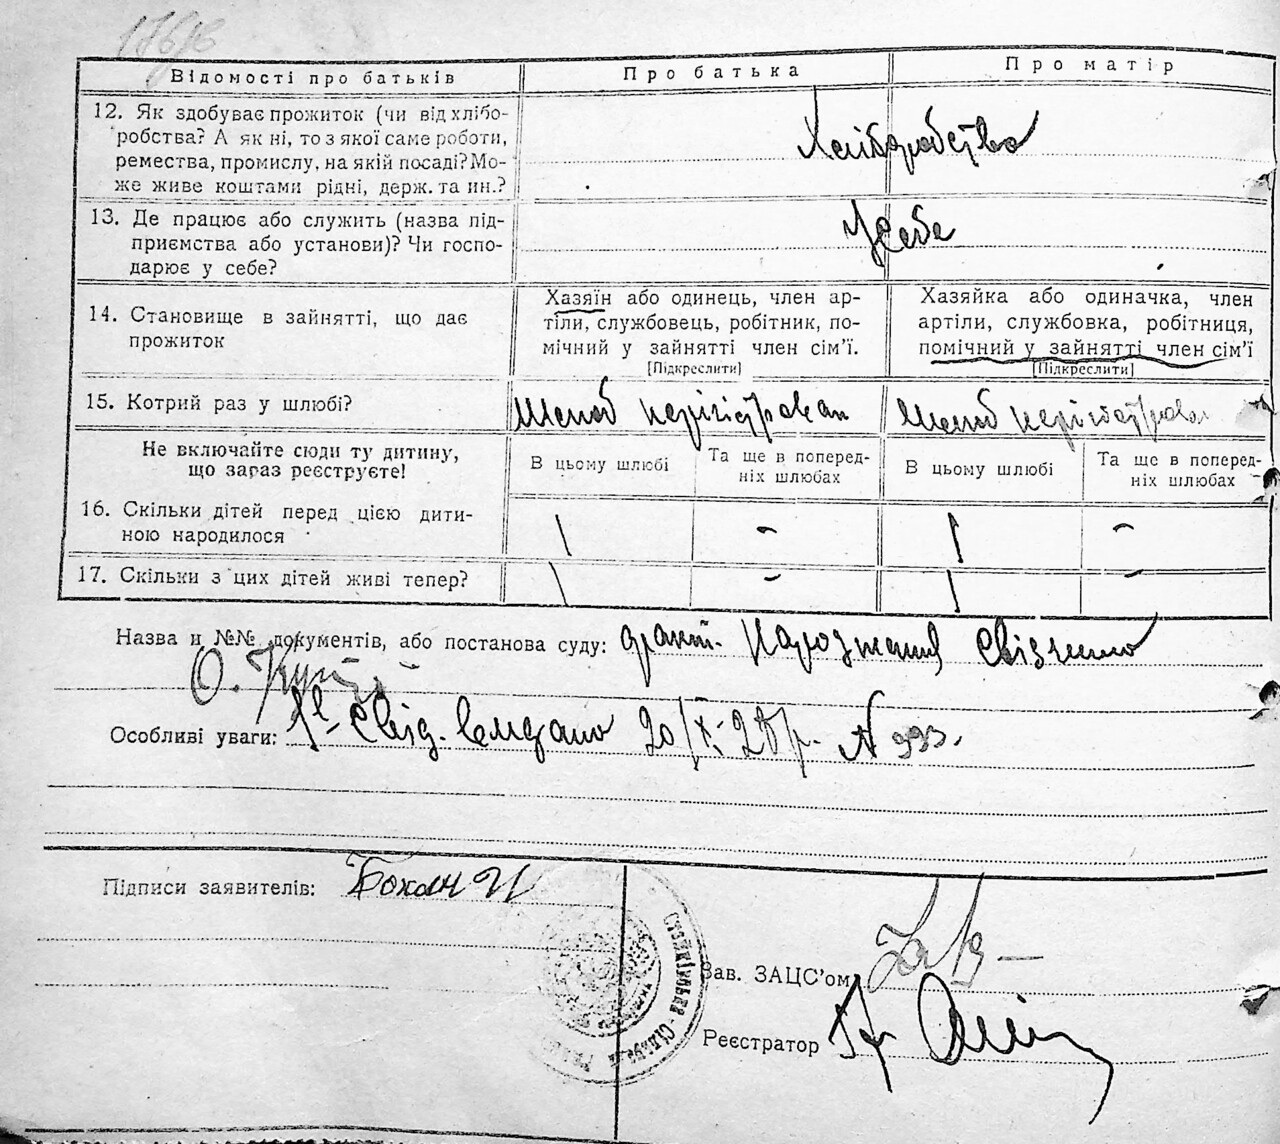 176/в
Відомості про батьків
Про батька
Про матір
12. Як здобуває прожиток (чи від хлібо-
робства? А як ні, то з якої саме роботи,
ремества, промислу, на якій посаді? Мо-
же живе коштами рідні, держ. та ин.?
Хліборобство
13. Де працює або служить (назва під-
приємства або установи)? Чи госпо-
дарює у себе?
У себе
14. Становище в зайнятті, що дає
прожиток
Хазяїн або одинець, член ар-
тіли, службовець, робітник, по-
мічний у зайнятті член сім'ї.
[Підкреслити]
Хазяйка або одиначка, член
артіли, службовка, робітниця,
помічний у зайнятті член сім'ї
[Підкреслити]
15. Котрий раз у шлюбі?
Шлюб
Шлюб
Не включайте сюди ту дитину,
що зараз реєструєте!
В цьому шлюбі
Та ще в поперед-
ніх шлюбах
В цьому шлюбі
Та ще в поперед-
ніх шлюбах
16. Скільки дітей перед цією дити-
ною народилося
1 - 1 -
17. Скільки з цих дітей живі тепер?
1 - 1 -
Назва и №№ документів, або постанова суду: факт народження свідчить
О.
Особливі уваги: свід. видано 20/X-28 р. N 993.
Підписи заявителів: Бохан И
Зав. ЗАЦС'ом
Реєстратор